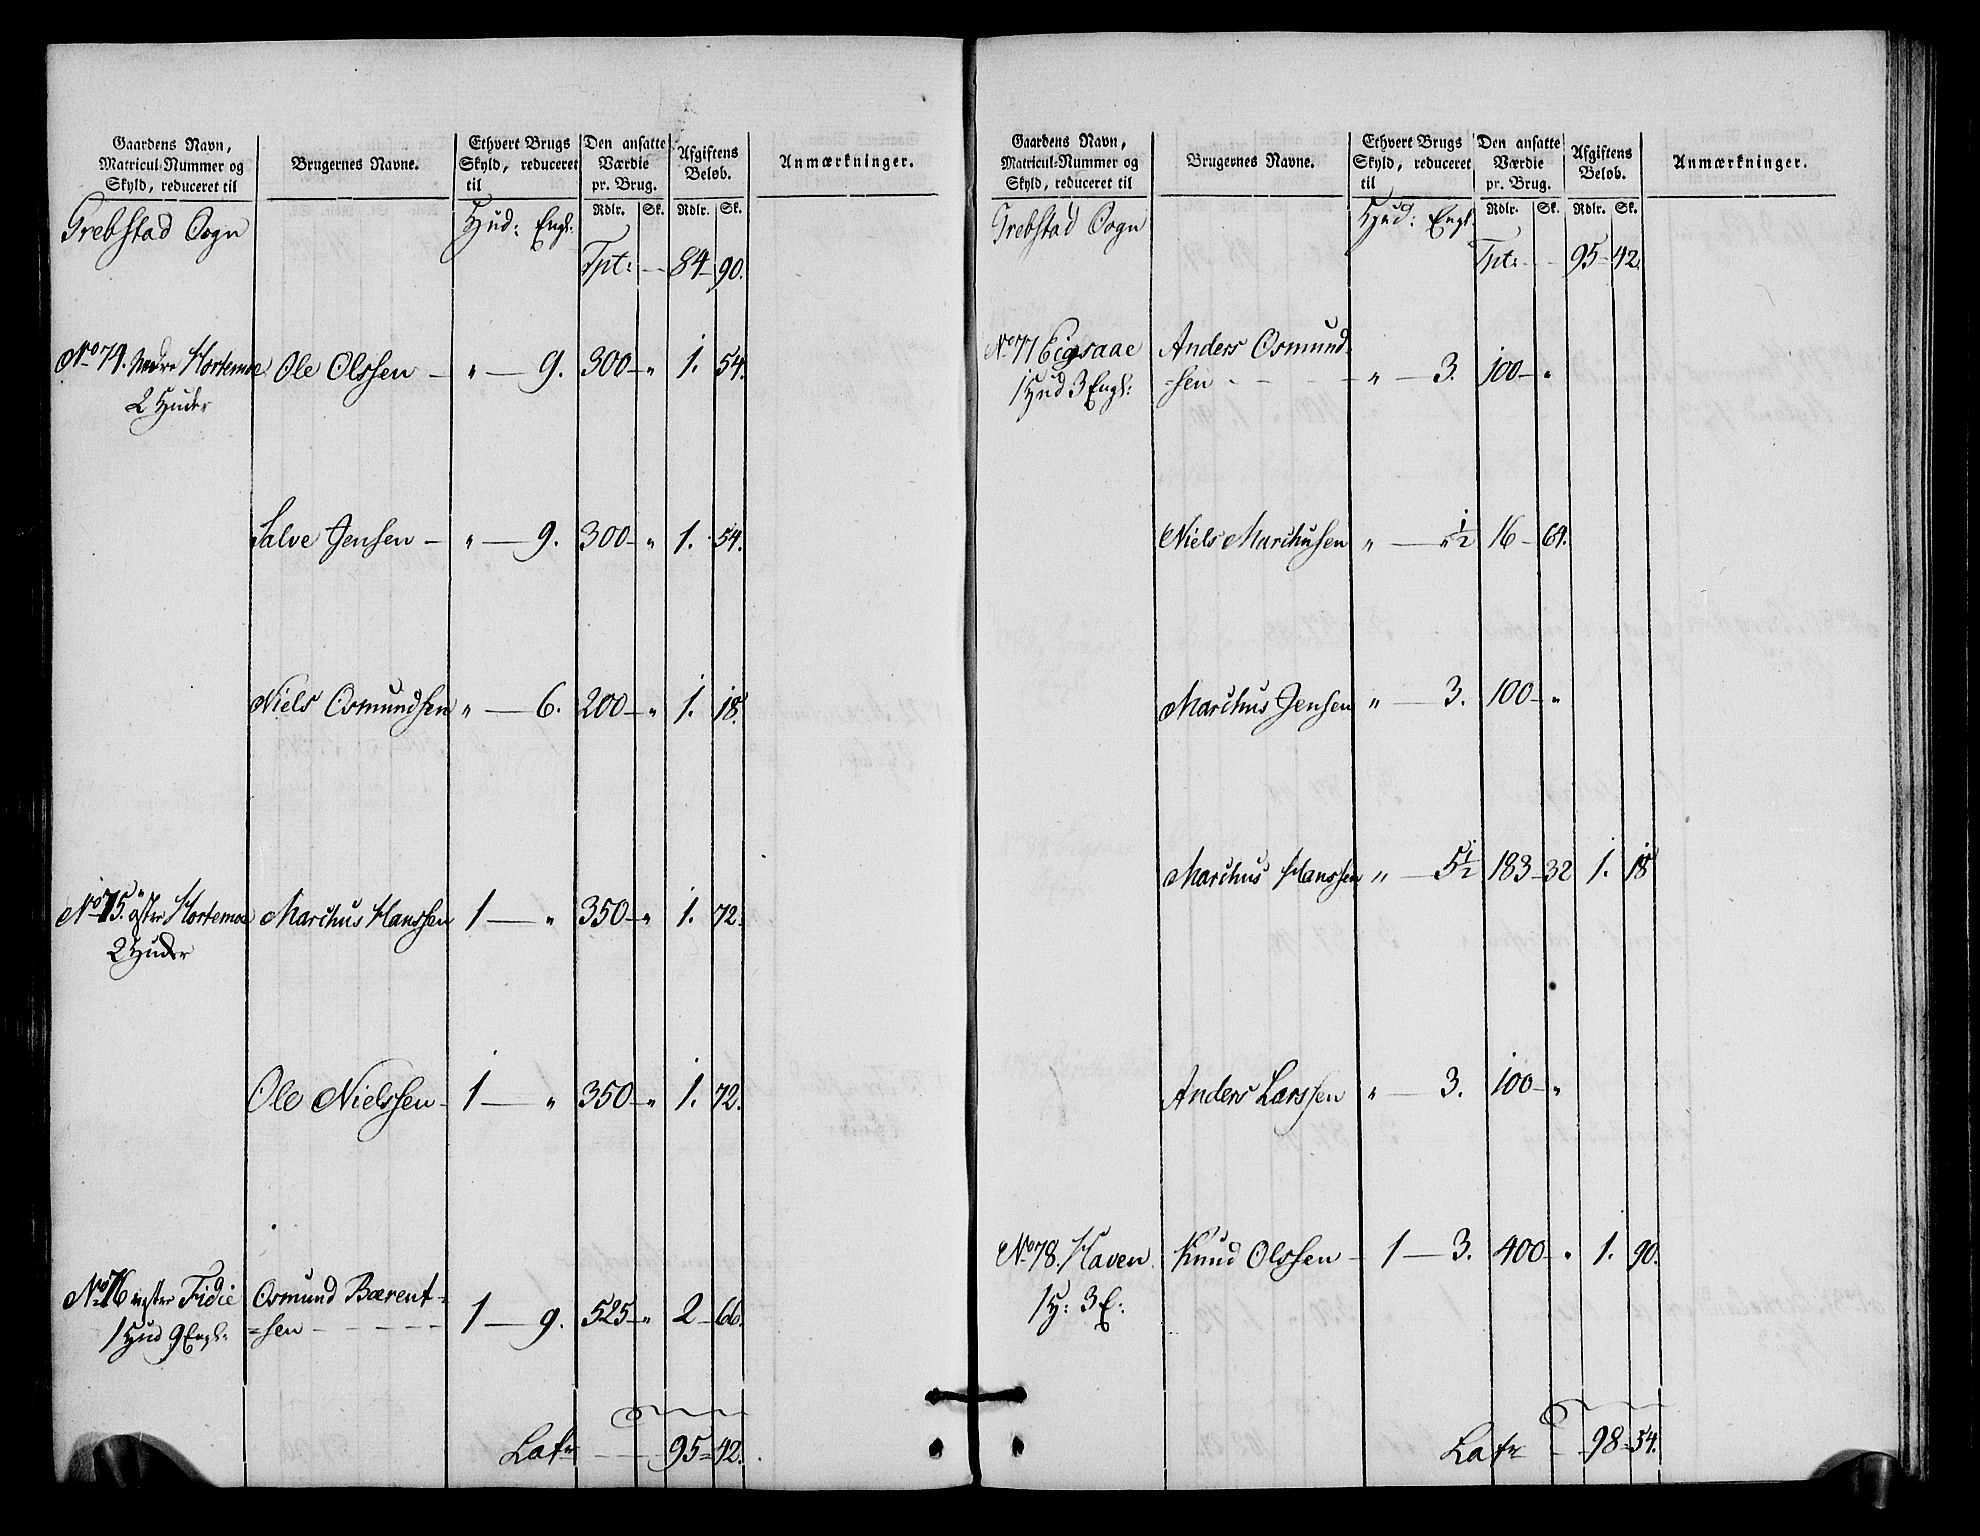 Gaardens Navn,
Matricul-Nummer og
Skyld, reduceret til
Brugernes Navne.
Ethvert Brugs
Skyld, reduceret
til
Den ansatte
Værdie
pr. Brug.
Afgiftens
Beløb.
Anmærkninger.
Rdlr. Sk. Rdlr. Sk.
Grebstad Sogn Hud: Engl:
Tpt: — 84 — 90.
No 74. Nedre Hortemoe Ole Olssen — " — 9. 300 — " 1. 54.
2 Huder
Salve Jensen — " — 9. 300 — " 1. 54.
Niels Osmundsen " — 6. 200 — " 1. 18.
No 75. øster Hortemoe Marchus Hanssen 1 — " 350 — " 1. 72.
2 Huder
Ole Nielssen — 1 — " 350 — " 1. 72.
No 76 vester Fidie Osmund Bærent=
1 Hud 9 Engl: =sen - - - - - 1 — 9. 525 — " 2 — 66.
Latr — 95 = 42.
Gaardens Navn,
Matricul-Nummer og
Skyld, reduceret til
Brugernes Navne.
Ethvert Brugs
Skyld, reduceret
til
Den ansatte
Værdie
pr. Brug.
Afgiftens
Beløb.
Anmærkninger.
Rdlr. Sk. Rdlr. Sk.
Grebstad Sogn Hud: Engl:
Tpt: - - 95 — 42.
No 77 Eigsaae Anders Osmund=
1 Hud 3 Engl: =sen - - - - " — 3. 100 — "
Niels Marchusen " — " 1/2 16 — 64.
Marchus Jensen " — 3. 100 — "
Marchus Hanssen " — 5 1/2 183 — 32 1. 18
Anders Larssen " — 3. 100 — "
No 78. Haven Knud Olssen — 1 — 3. 400 — " 1. 90.
1 H: 3 E:
Latr - 98 = 54.